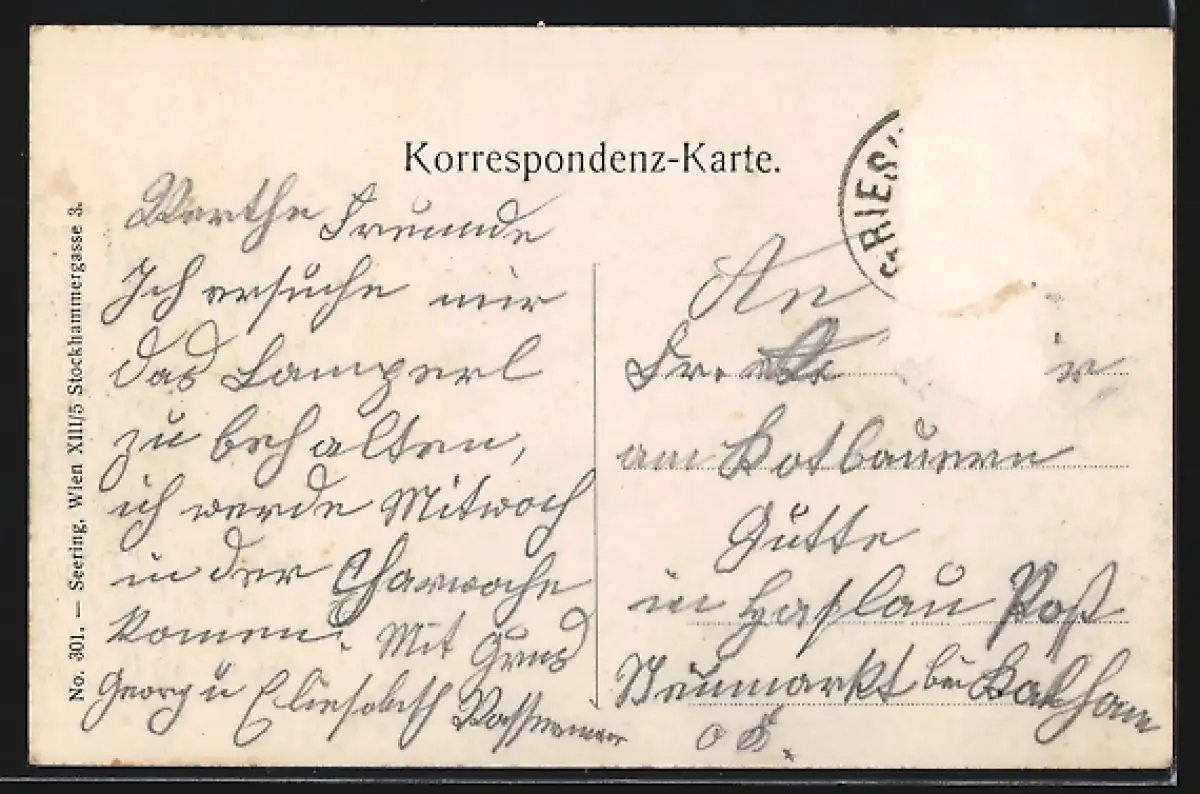 Korrespondenz-Karte.
No. 301. — Seering, Wien XIII/5 Stockhammergasse 3.
RIES
Werthe Freunde
Ich ersuche mir
das Lamperl
zu behalten,
ich werde Mitwoch
in der Charwoche
komen. Mit Grus
Georg u Eliesabeth
An
Fr.
am Kotbauern
Gütte
in Haslau Post
Neumarkt bei Kalham